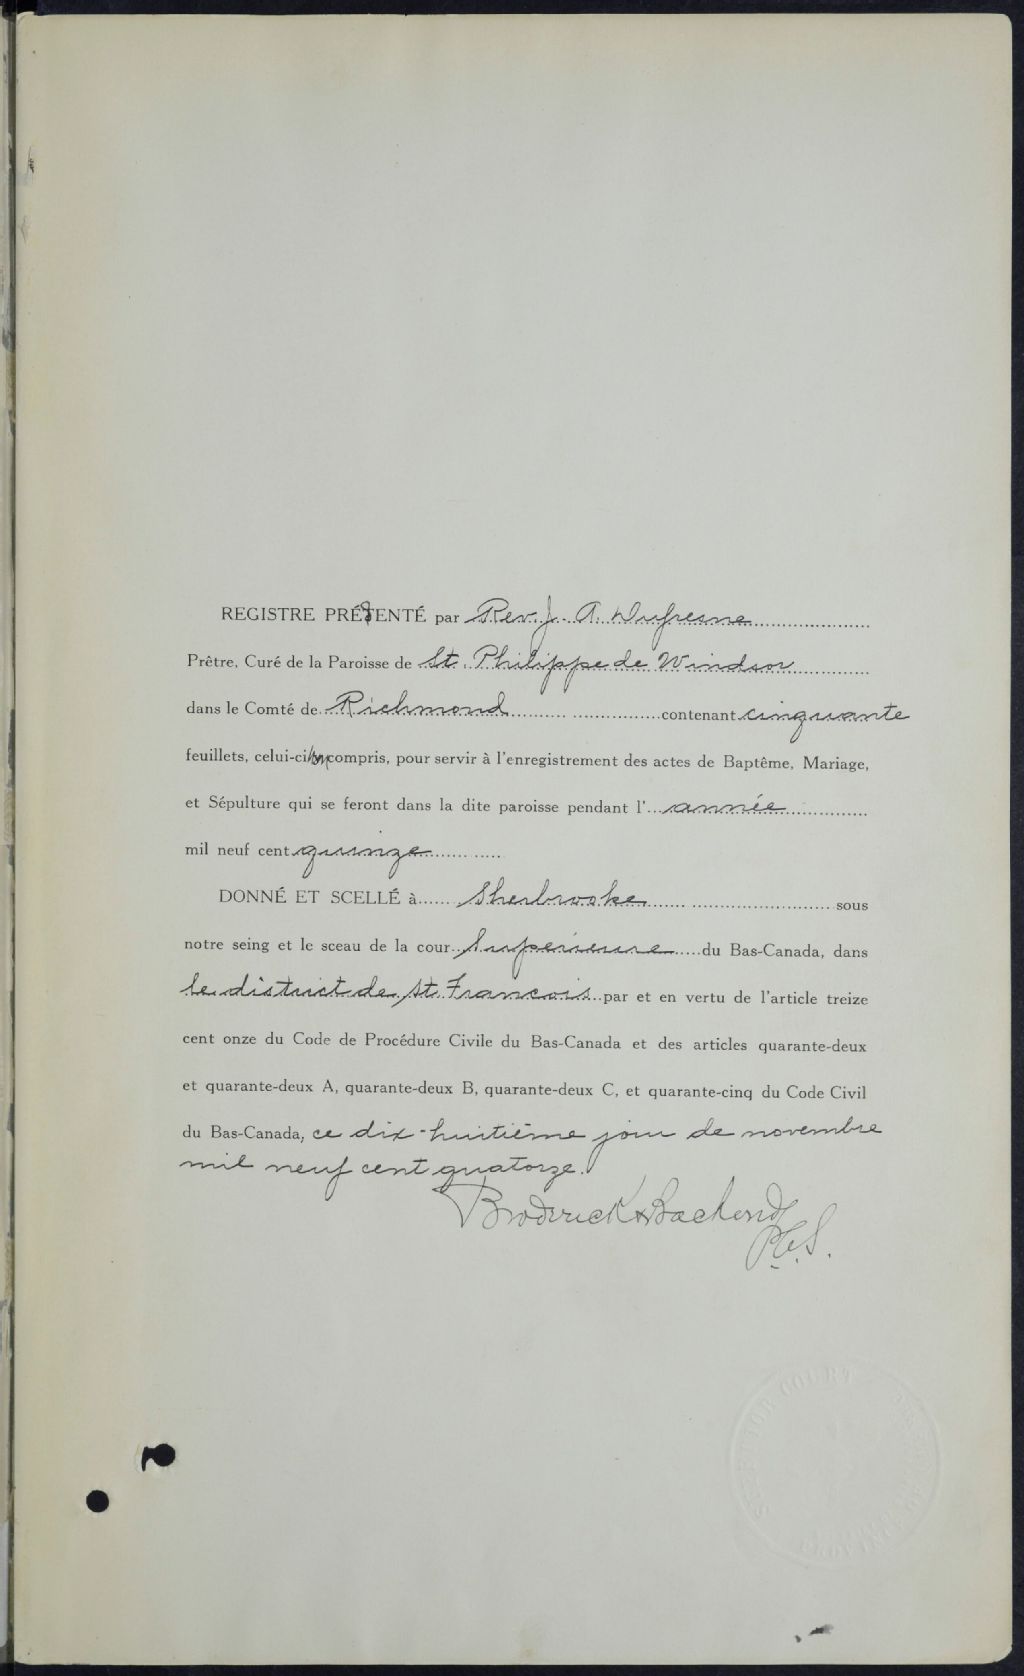 REGISTRE PRÉSENTÉ par Rev. J. A. Dufresne
Prêtre, Curé de la Paroisse de St. Philippe de Windsor
dans le Comté de Richmond contenant cinquante
feuillets, celui-ci non compris, pour servir à l'enregistrement des actes de Baptême, Mariage,
et Sépulture qui se feront dans la dite paroisse pendant l' année
mil neuf cent quinze
DONNÉ ET SCELLÉ à Sherbrooke sous
notre seing et le sceau de la cour Supérieure du Bas-Canada, dans
le district de St. Francois par et en vertu de l'article treize
cent onze du Code de Procédure Civile du Bas-Canada et des articles quarante-deux
et quarante-deux A, quarante-deux B, quarante-deux C, et quarante-cinq du Code Civil
du Bas-Canada, ce dix-huitième jour de novembre
mil neuf cent quatorze.
Broderick & Bachand
P.C.S.
SUPERIOR COURT